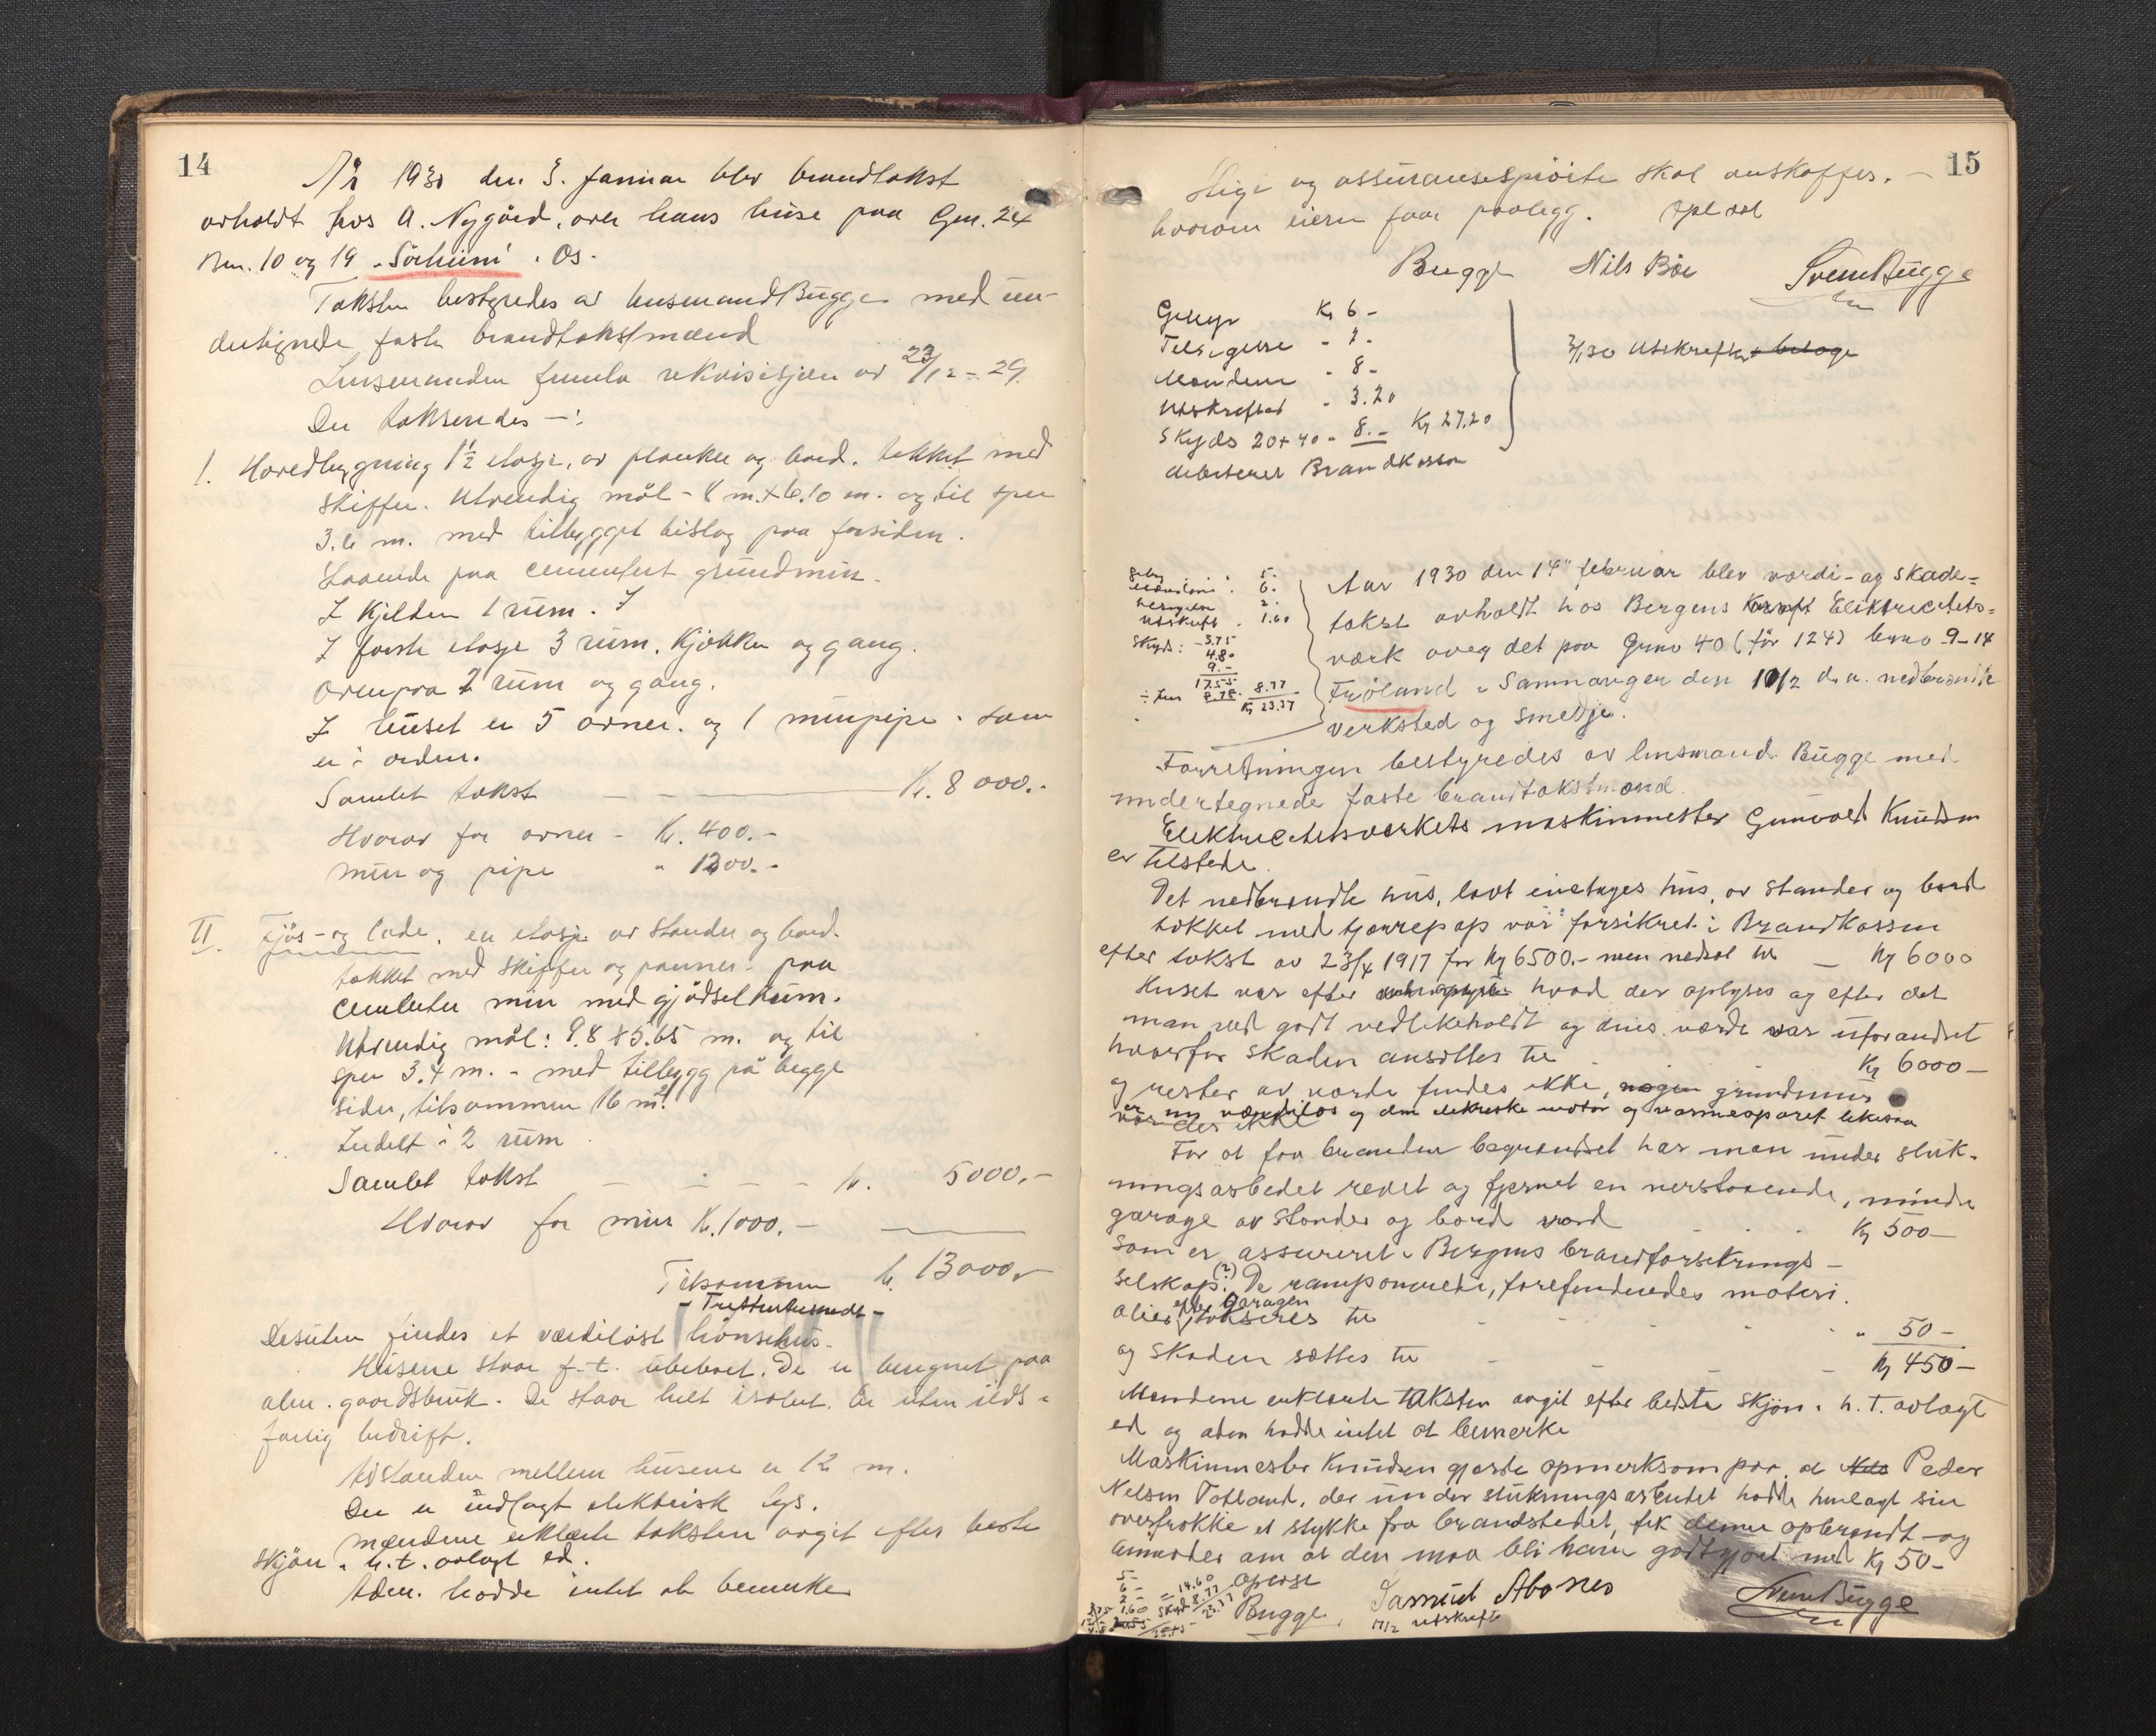 14
År 1930 den 3. januar blev brandtakst
avholdt hos A. Nygård, over hans huse paa Gnr. 24
Bnr. 10 og 19 "Sörheim" i Os.
Taksten bestyredes av lensmand Bugge med un-
dertegnede faste brandtakstmænd
Lensmanden fremla rekvisisjon av 23/12 - 29.
Der takseredes -:
1. Hovedbygning 1½ etasje, av planker og bord. tekket med
skiffer. Utvendig mål - 8 m. x 6.10 m. og til sper
3.6 m. med tilbygget bislag paa forsiden.
Staaende paa cementert grundmur.
I kjelder 1 rum.
I förste etasje 3 rum, kjökken og gang.
Ovenpaa 2 rum og gang.
I huset er 5 ovner. og 1 murpipe. som
er i orden.
Samlet takst - - Kr. 8 000.-
Hvorav for ovner - Kr. 400.-
mur og pipe " 1200.-
II. Fjös- og lade. en etasje av stander og bord.
tekket med skiffer og panner - paa
cementer mur med gjödselrum.
Utvendig mål: 9.8 x 5.65 m. og til
sper 3.4 m. - med tilbygg på begge
sider, tilsammen 16 m².
Indelt i 2 rum
Samlet takst - - - - kr. 5000.-
Hvorav for mur Kr. 1000.-
Tilsammen kr. 13000.-
- Trettentusende -
Desuten findes et værdilöst hönsehus.
Husene staar f.t. ubeboet. De er beregnet paa
alm. gaardsbruk. De staar helt isolert. Er uten ilds-
farlig bedrift.
Avstanden mellem husene er 12 m.
Der er indlagt elektrisk lys.
Mændene erklærte taksten avgit efter beste
skjön i h.t. avlagt ed.
Adm. hadde intet at bemerke
15
Stige og assuransespröite skal anskaffes. -
hvorom eieren faar paalegg. Oplæst
Bugge Nils Böe Svein Bugge
Gebyr Kr 6 -
Tilsigelse " 2 -
Mændene " 8 -
Utskrifter " 3.20
Skyds 20+40 " 8.- Kr 27.20
debiteres Brandkassen
3/1 30 Utskrefter + betage
5.
6.
2.
Utskrift . 1.60
Skyds: - 3.75
4.80
9.-
17.55
8.78 8.77
Kr 23.37
Aar 1930 den 14de februar blev værdi- og skade-
takst avholdt hos Bergens Elektricitets-
værk over det paa Grno 40 (för 124) brno 9-14
Fröland i Samnanger den 10/2 d.a. nedbrændte
verksted og smedje.
Forretningen bestyredes av lensmand Bugge med
undertegnede faste brandtakstmænd.
Elektricitetsverkets maskinmester Gunvald Knudsen
er tilstede.
Det nedbrændte hus, lavt enetages hus, av stander og bord
tækket med tjærepap var forsikret i Brandkassen
efter takst av 23/4 1917 for Kr 6500.- men nedsat til - Kr 6000
Huset var efter hvad der oplyses og efter det
man ved godt vedlikeholdt og dets værde var uforandret
hvorfor skaden ansættes til - Kr 6000 -
og rester av værde findes ikke, nogen grundmur
er nu værdilös og den elektriske motor og varmeaparat likesaa
var der ikke
For at faa branden begrændset har man under sluk-
ningsarbeidet revet og fjernet en nerstaaende, mindre
garage av stander og bord værd - - - Kr 500 -
som er assureret i Bergens brandforsikrings -
selskap (?). De ramponerede, forefindendes materi.
alier efter Garagen takseres til - - - - " 50 -
og skaden sættes til - - - Kr 450 -
Mændene erklærte taksten avgit efter bedste skjön i h.t. avlagt
ed og adm hadde intet at bemerke
Maskinmester Knudsen gjorde opmerksom paa at Nils Peder
Nilsen Totland, der under slukningsarbeidet hadde henlagt sin
overfrakke et stykke fra brandstedet, fik denne opbrændt - og
anmoder om at den maa bli ham godtgjort med Kr 50 -
Oplæst
Bugge, Samuel Abosnes Svein Bugge
17/2 utskrift
5 -
6 -
2 -
1.60
= 14.60
Skyds 8.77
23.37